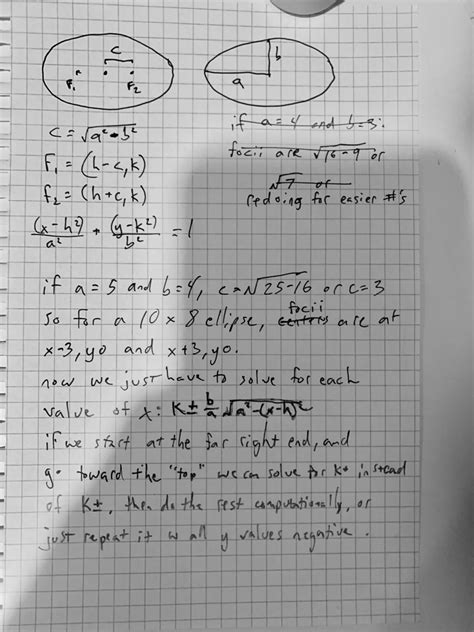 C
F₁ F₂
b
a
C = √a² - b²
F₁ = (h-c, k)
F₂ = (h+c, k)
(x-h²)/a² + (y-k²)/b² = 1
if a=4 and b=3:
focii are √16-9 or
√7 or
redoing for easier #'s
if a=5 and b=4, c=√25-16 or c=3
So for a 10 x 8 ellipse, focii are at
x-3, y0 and x+3, y0.
now we just have to solve for each
value of x: K± b/a √a²-(x-h)²
if we start at the far right end, and
go toward the "top" we can solve for K+ instead
of K±, then do the rest computationally, or
just repeat it w all y values negative.